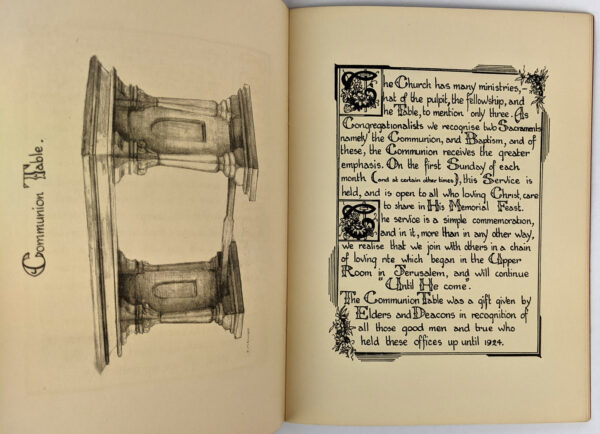 Communion Table.
The Church has many ministries,–
that of the pulpit, the fellowship, and
the Table, to mention only three. As
Congregationalists we recognise two Sacraments
namely the Communion, and Baptism, and of
these, the Communion receives the greater
emphasis. On the first Sunday of each
month (and at certain other times), this Service is
held, and is open to all who loving Christ, care
to share in His Memorial Feast.
The service is a simple commemoration,
and in it, more than in any other way,
we realise that we join with others in a chain
of loving rite which began in the Upper
Room in Jerusalem, and will continue
"Until He come".
The Communion Table was a gift given by
Elders and Deacons in recognition of
all those good men and true who
held these offices up until 1924.